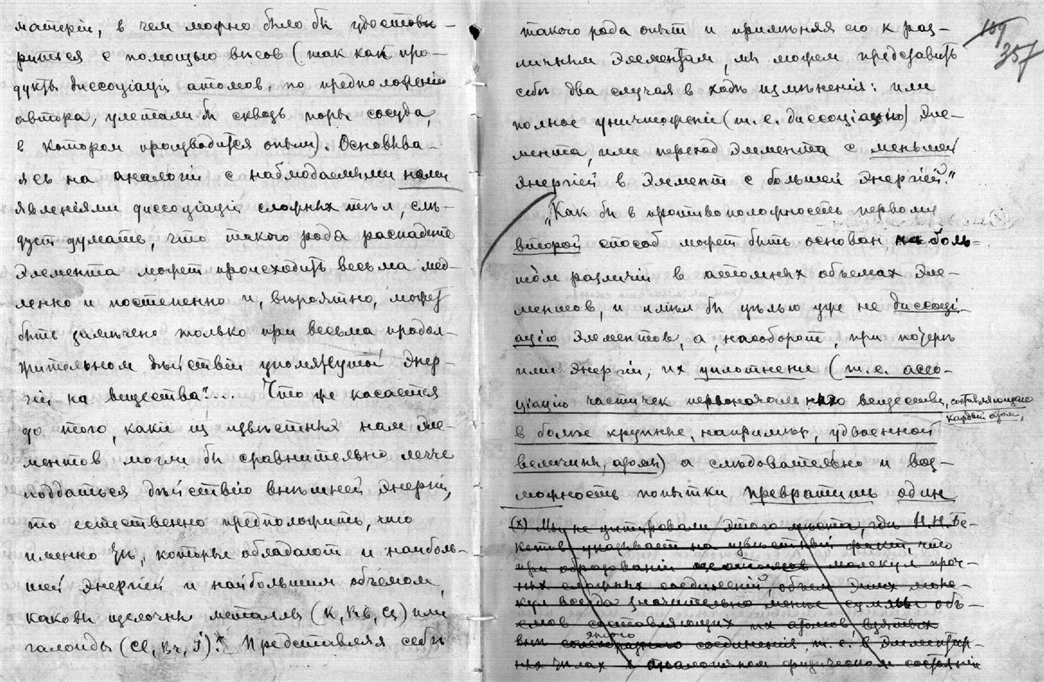 матерiи, в чем можно было бы удостове-
риться с помощью весов (так как про-
дукты диссоцiацiи атомов, по предположенiю
автора, улетали бы сквозь поры сосуда,
в котором производится опыт). Основыва-
ясь на аналогiи с наблюдаемыми нами
явленiями диссоцiацiи сложных тѣл, слѣ-
дует думать, что такого рода распаденiе
элемента может происходить весьма мед-
ленно и постепенно и, вѣроятно, может
быть замѣчено только при весьма продол-
жительном дѣйствiи упомянутой энер-
гiи на вещества"... Что же касается
до того, какiе из извѣстных нам эле-
ментов могли бы сравнительно легче
поддаться дѣйствiю внѣшней энергiи,
то естественно предположить, что
именно тѣ, которые обладают и наиболь-
шей энергiей и наибольшим объемом,
каковы щелочные металлы (К, Rb, Cs) или
галоиды (Cl, Br, J).* Представляя себѣ
357
такого рода опыт и примѣняя его к раз-
личным элементам, мы можем представить
себѣ два случая в ходѣ измѣненiя: или
полное уничтоженiе (т. е. диссоцiацiю) эле-
мента, или переход элемента с меньшей
энергiей в элемент с большей энергiей."
„Как бы в противоположность первому
второй способ может быть основан на боль-
шом различiи в атомных объемах эле-
ментов, и имѣл бы цѣлью уже не диссоцi-
ацiю элементов, а, наоборот, при потерѣ
ими энергiи, их уплотненiе (т. е. ассо-
цiацiю частичек первоначального вещества, составляющих
каждый атом,
в болѣе крупные, например, удвоенной
величины, атомы) а слѣдовательно и воз-
можность попытки превратить один
(х) Мы не цитировали этого мѣста, гдѣ Н. Н. Бе-
кетов указывает на извѣстный факт, что
при образованiи молекул проч-
ных сложных соединенiй, объем этих моле-
кул всегда значительно менѣе суммы объ-
емов составляющих их атомов, взятых
внѣ этого соединенiя, т. е. в элементар-
ных тѣлах в аналогичном физическом состоянiи